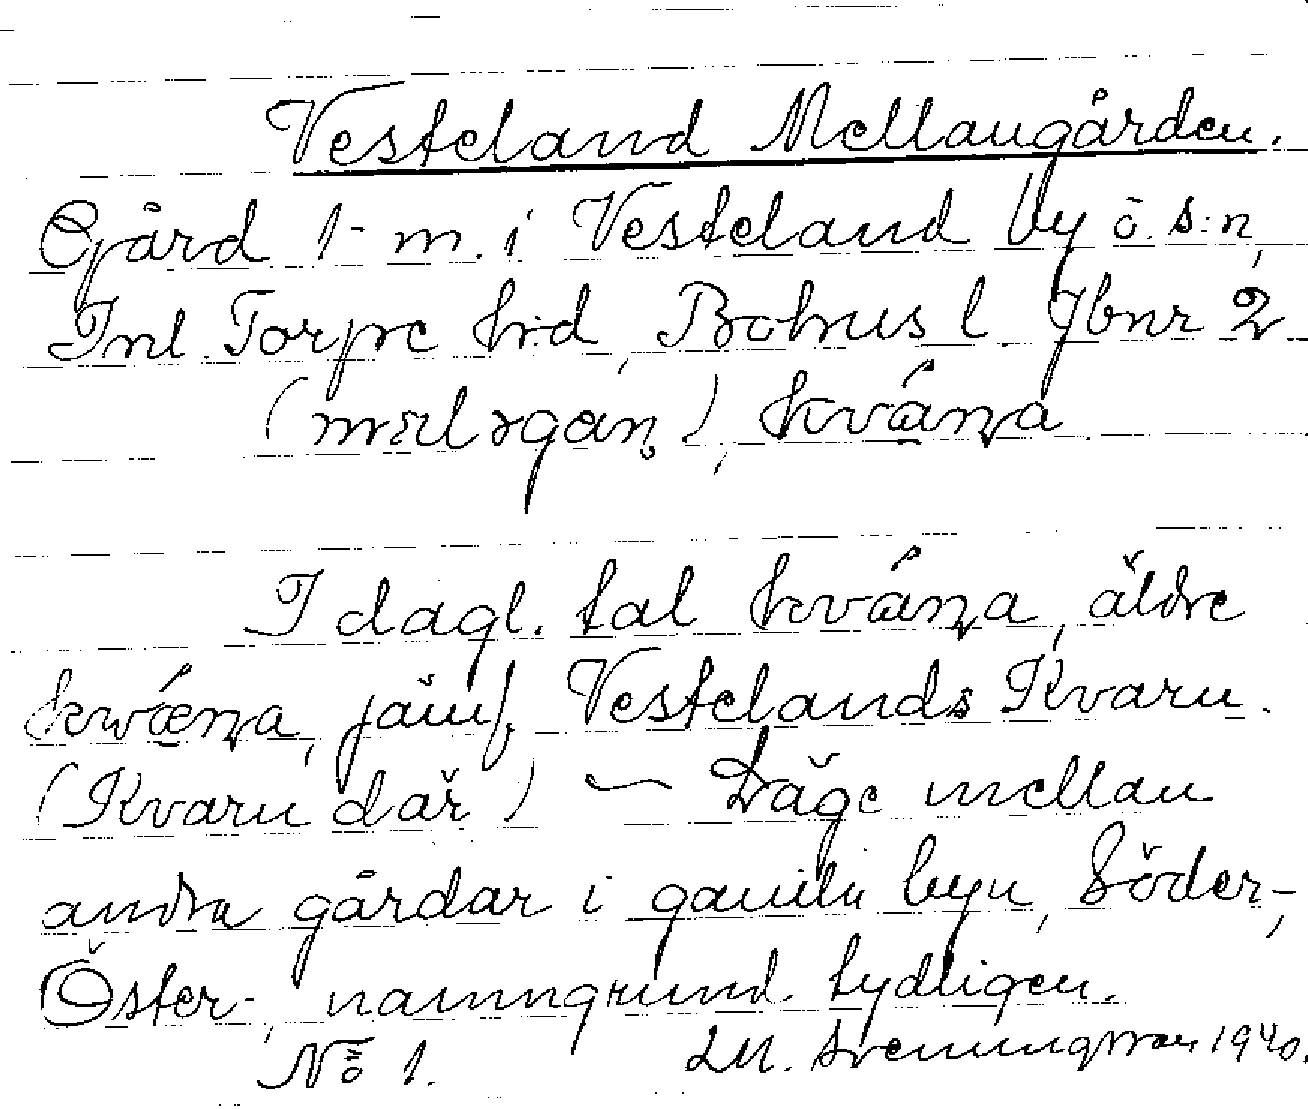 Vesteland Mellangården.
Gård 1- m. i Vesteland by ö. s:n,
Inl Torpe hrd, Bohus l. Jbnr 2
(mæl əgan̥), kvá̄n̥a
I dagl. tal kvá̄n̥a, äldre
kwǽn̥a, jämf. Vestelands Kvarn.
(Kvarn där) — Läge mellan
andra gårdar i gamla byn, Söder-,
Öster-, namngrund tydligen.
No 1. LM. Svenungsson 1940.